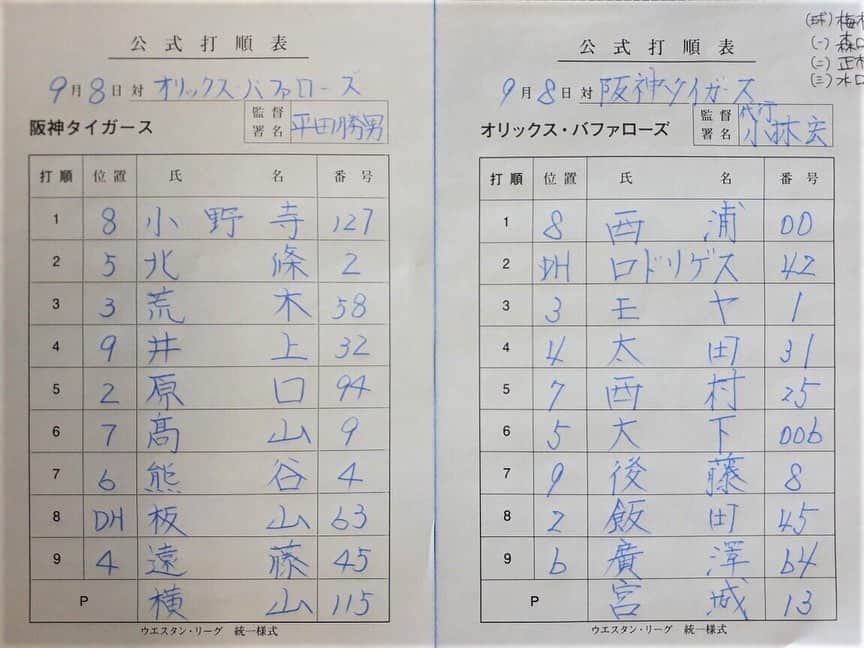 公式打順表
9月8日 対 オリックス・バファローズ
阪神タイガース 監督署名 平田勝男
打順 位置 氏名 番号
1 8 小野寺 127
2 5 北條 2
3 3 荒木 58
4 9 井上 32
5 2 原口 94
6 7 髙山 9
7 6 熊谷 4
8 DH 板山 63
9 4 遠藤 45
P 横山 115
ウエスタン・リーグ 統一様式
(球)梅木
(一)森口
(二)正木
(三)水口
公式打順表
9月8日 対 阪神タイガース
オリックス・バファローズ 監督署名 代行 小林宏
打順 位置 氏名 番号
1 8 西浦 00
2 DH ロドリゲス 42
3 3 モヤ 1
4 4 太田 31
5 7 西村 25
6 5 大下 006
7 9 後藤 8
8 2 飯田 45
9 6 廣澤 64
P 宮城 13
ウエスタン・リーグ 統一様式